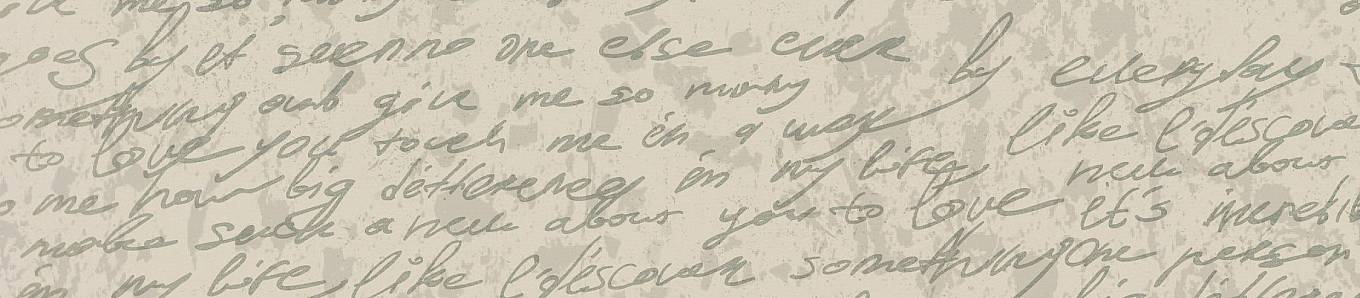 me so
goes by it seemno one else ever by everyday
something and give me so many
to love you touch me in a way like I discover
me how big difference in my life new about
make such a new about you to love it's incredib
in my life, like I discover something one person